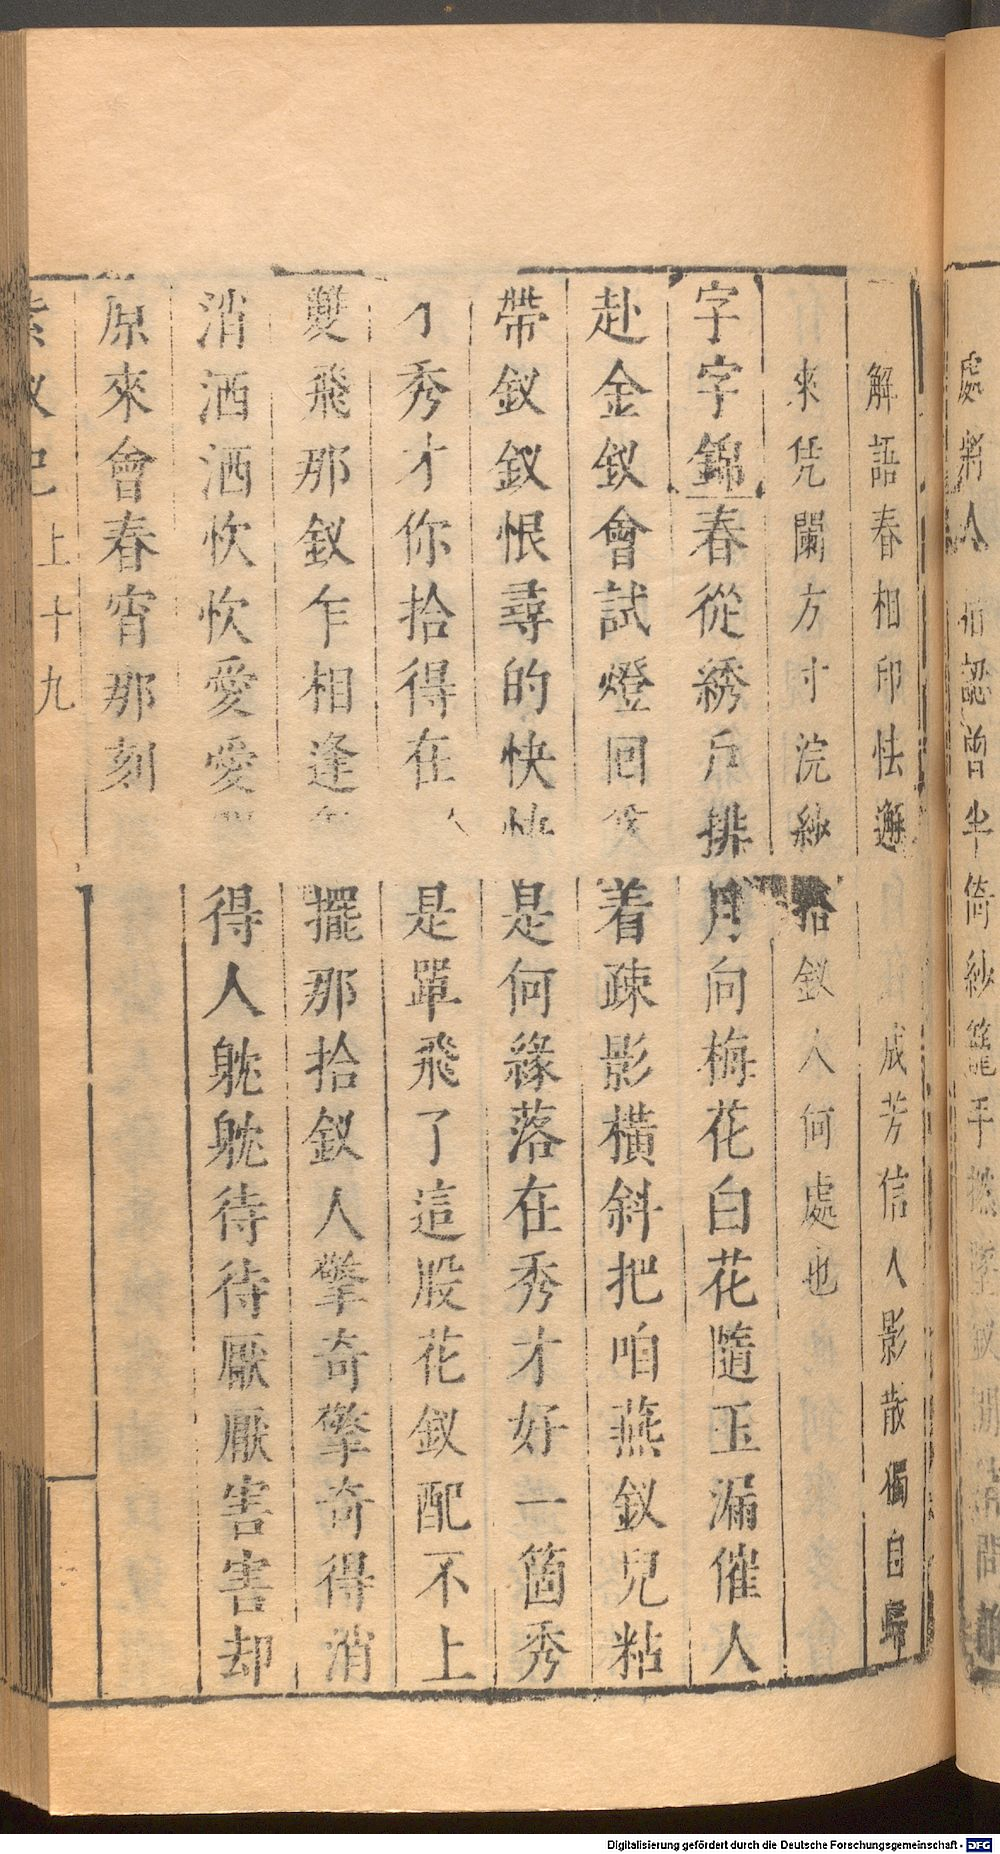 處 將人 拾認曾半倚紗籠手撚墜釵閒
解語春相印怯邂 成芳信人影散獨自歸
來凭闌方寸浣紗 拾釵人何處也
字字錦春從綉戶排 月向梅花白花隨玉漏催人
赴金釵會試燈回 着疎影橫斜把咱燕釵兒粘
帶釵釵恨尋的快快 是何緣落在秀才好一箇秀
才秀才你拾得在 是單飛了這股花釵配不上
雙飛那釵乍相逢 擺那拾釵人擎奇擎奇得消
消洒洒忺忺愛愛 得人躭躭待待厭厭害害却
原來會春宵那刻
紫釵記上十九
Digitalisierung gefördert durch die Deutsche Forschungsgemeinschaft - DFG